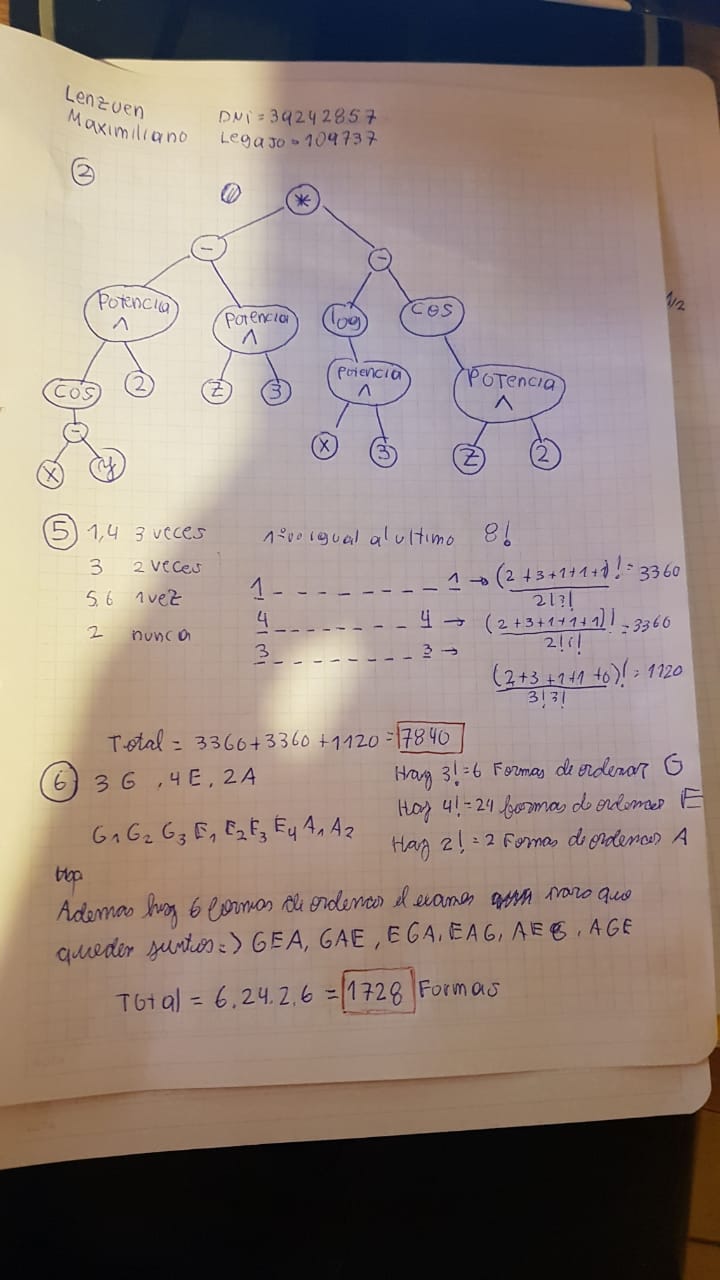 Lenzuen
Maximiliano
DNi = 39242857
Legajo = 109737
②
*
- -
Potencia ^ Potencia ^ log cos
cos 2 z 3 Potencia ^ POTencia ^
- x 3 z 2
x y
1/2
⑤ 1,4 3 veces 1º igual al ultimo 8!
3 2 veces
5,6 1 vez
2 nunca
1 _ _ _ _ _ _ _ _ 1 → (2+3+1+1+1)! = 3360
2!3!
4 _ _ _ _ _ _ _ _ 4 → (2+3+1+1+1)! = 3360
3 _ _ _ _ _ _ _ _ 3 →
(2+3+1+1+0)! = 1120
3!3!
Total = 3360+3360+1120 = 7840
⑥ 3 G, 4 E, 2 A
Hay 3! = 6 Formas de ordenar G
Hay 4! = 24 formas de ordenar E
Hay 2! = 2 Formas de ordenar A
G1 G2 G3 E1 E2 E3 E4 A1 A2
Ademas hay 6 formas de ordenar el para que
queden juntos => GEA, GAE, EGA, EAG, AEG, AGE
Total = 6.24.2.6 = 1728 Formas